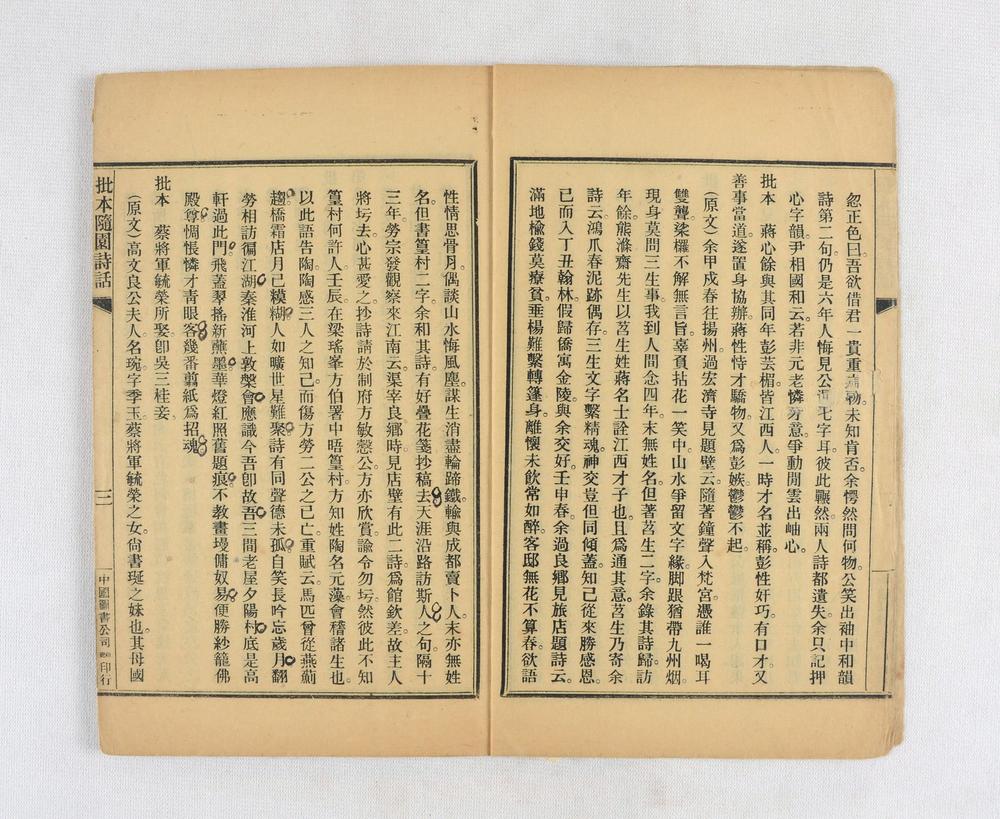 忽正色曰。吾欲借君一貴重之物。未知肯否。余愕然問何物。公笑出袖中和韻
詩第二句。仍是六年人悔見公遲七字耳。彼此囅然。兩人詩都遺失。余只記押
心字韻。尹相國和云。若非元老憐芳意。爭動閒雲出岫心。
批本　蔣心餘與其同年彭芸楣。皆江西人。一時才名並稱。彭性奸巧。有口才。又
善事當道。遂置身協辦。蔣性恃才驕物。又爲彭嫉。鬱鬱不起。
（原文）余甲戍春往揚州。過宏濟寺。見題壁云。隨著鐘聲入梵宮。憑誰一喝耳
雙聾。桬欏不解無言旨。辜負拈花一笑中。山水爭留文字緣。脚跟猶帶九州烟。
現身莫問三生事。我到人間念四年。末無姓名。但著苕生二字。余錄其詩。歸訪
年餘。熊滌齋先生以苕生姓蔣。名士詮。江西才子也。且爲通其意。苕生乃寄余
詩云。鴻爪春泥跡偶存。三生文字繫精魂。神交豈但同傾蓋。知己從來勝感恩。
已而入丁丑翰林。假歸僑寓金陵。與余交好。壬申春。余過良鄉。見旅店題詩云。
滿地楡錢莫療貧。垂楊難繫轉篷身。離懷未飲常如醉。客邸無花不算春。欲語
性情思骨月。偶談山水悔風塵。謀生消盡輪蹄鐵。輸與成都賣卜人。末亦無姓
名。但書篁村二字。余和其詩。有好疊花箋抄稿去。天涯沿路訪斯人之句。隔十
三年。勞宗發觀察來江南。云渠宰良鄉時。見店壁有此二詩。爲館欽差故。主人
將圬去。心甚愛之。抄詩請於制府方敏慤公。方亦欣賞。諭令勿圬。然彼此不知
篁村何許人。壬辰。在梁瑤峯方伯署中晤篁村。方知姓陶名元藻。會稽諸生也。
以此語告陶。陶感三人之知己。而傷方勞二公之已亡。重賦云。馬匹曾從燕薊
趨。橋霜店月已糢糊。人如曠世星難聚。詩有同聲德未孤。自笑長吟忘歲月。翻
勞相訪徧江湖。秦淮河上敦槃會。應識今吾卽故吾。三間老屋夕陽村。底是高
軒過此門。飛蓋翠搖新蘸墨。華燈紅照舊題痕。不教畫墁傭奴易。便勝紗籠佛
殿尊。惆悵憐才靑眼客。幾番翦紙爲招魂。
批本　蔡將軍毓榮所娶。卽吳三桂妾。
（原文）高文良公夫人。名琬。字季玉。蔡將軍毓榮之女。尙書珽之妹也。其母國
批本隨園詩話
三
中國圖書公司
印行